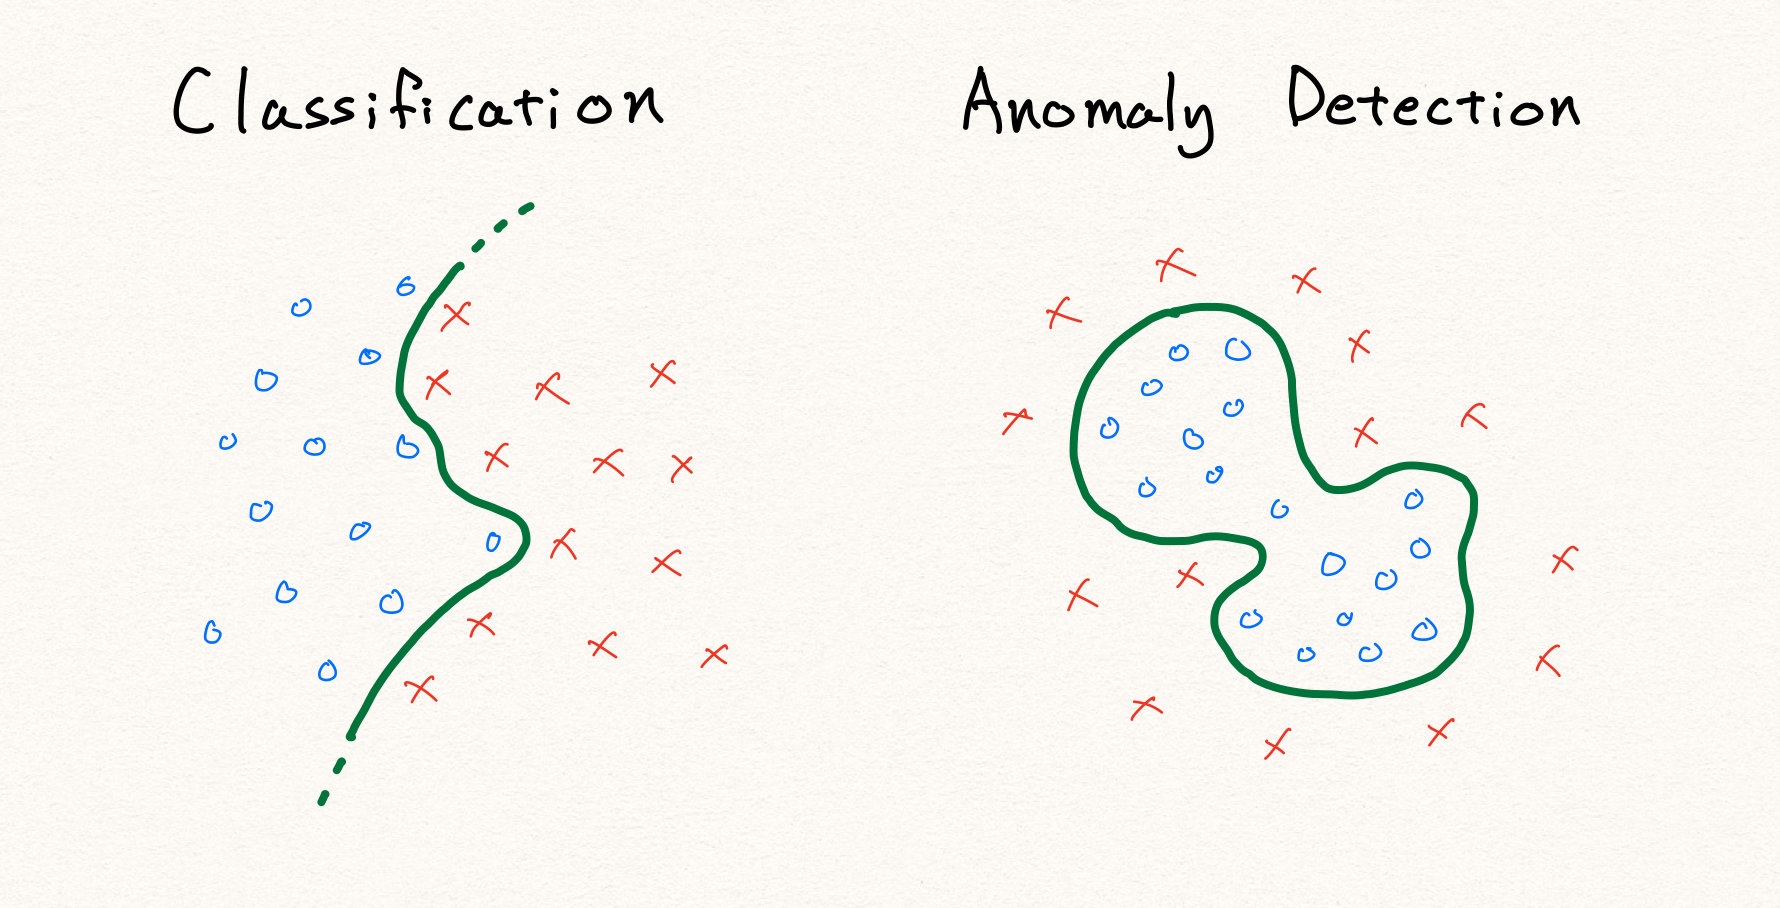 Classification
Anomaly Detection